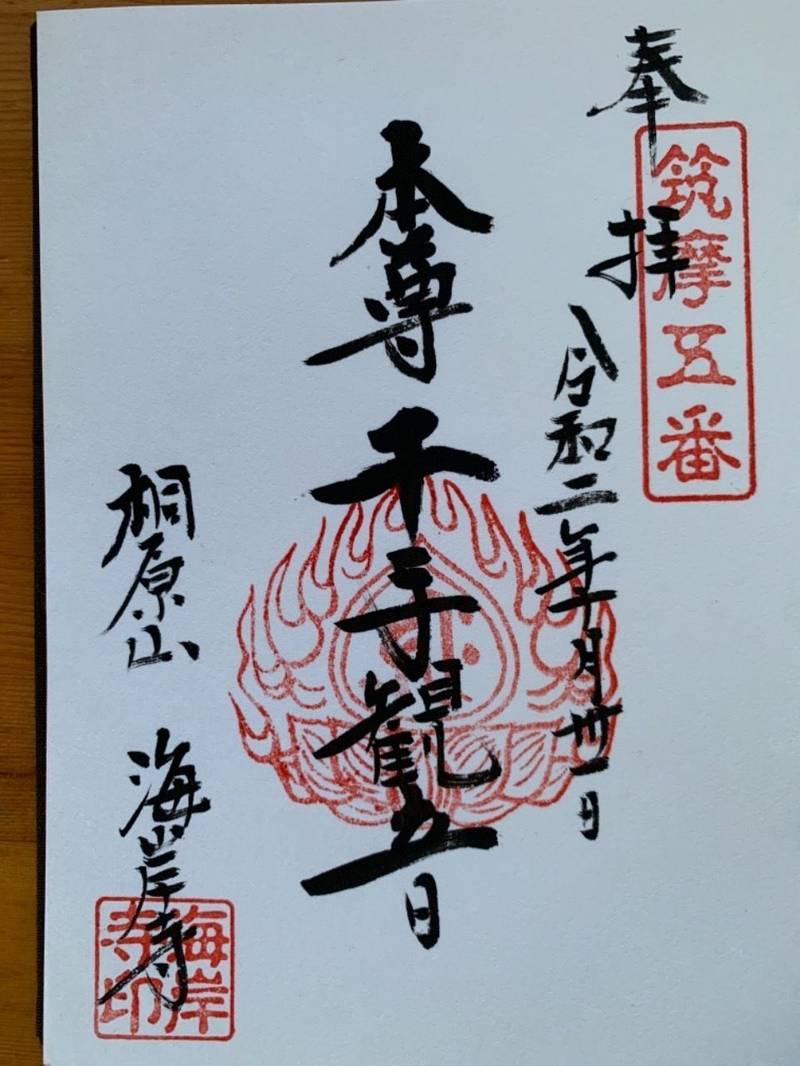 奉拝
筑摩五番
令和二年十月卅一日
本尊千手観音
桐原山 海岸寺
海岸寺印